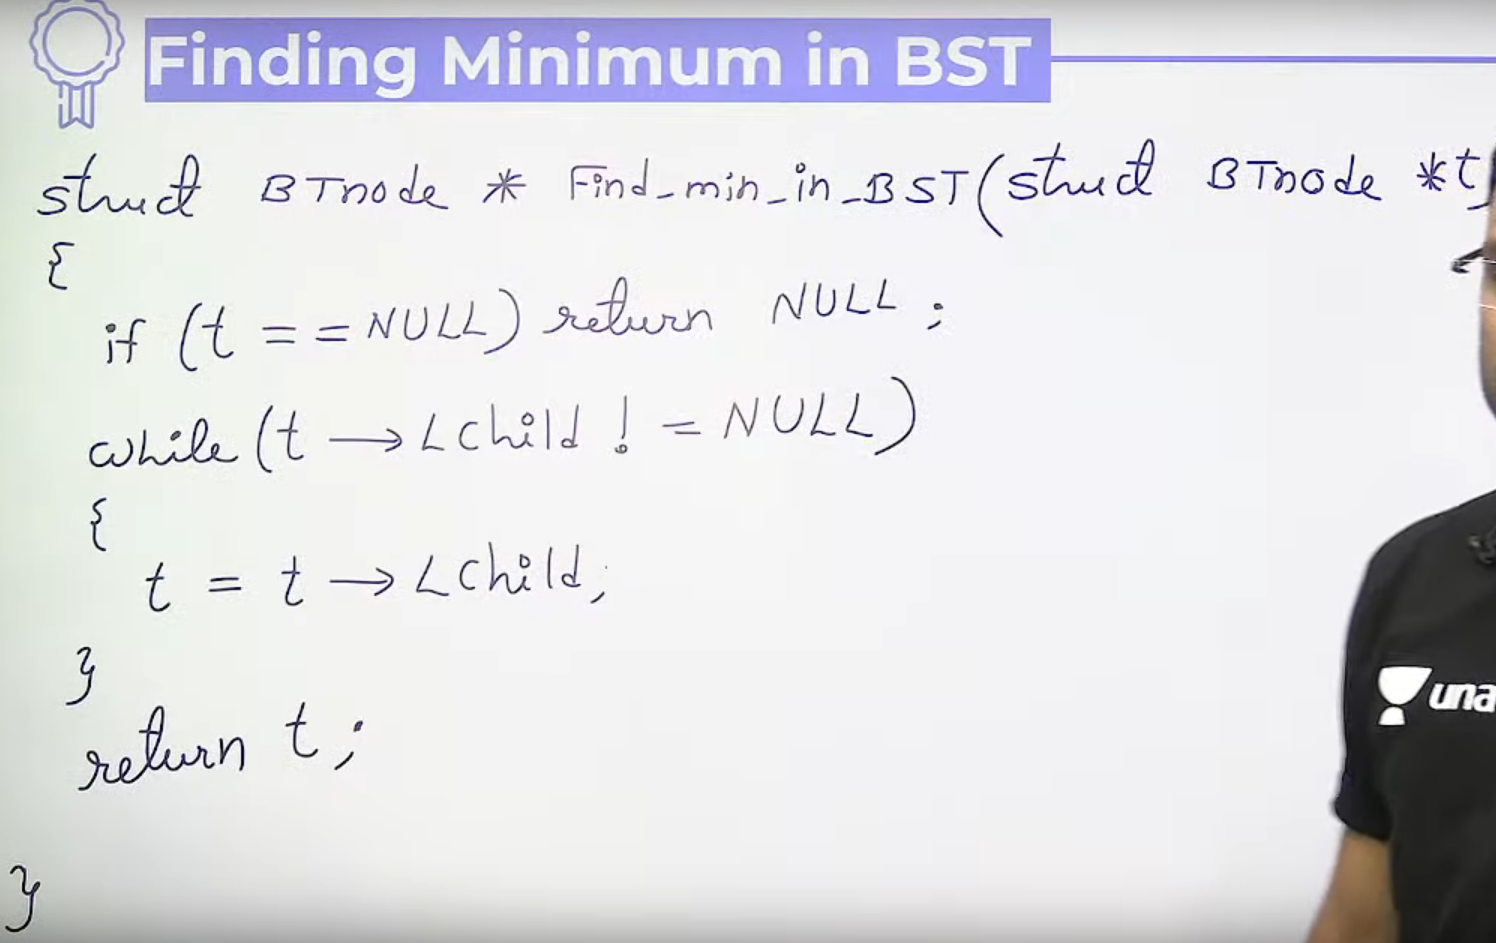 Finding Minimum in BST
struct BTnode * Find_min_in_BST(struct BTnode *t)
{
if (t == NULL) return NULL ;
while (t → Lchild != NULL)
{
t = t → Lchild;
}
return t ;
}
una